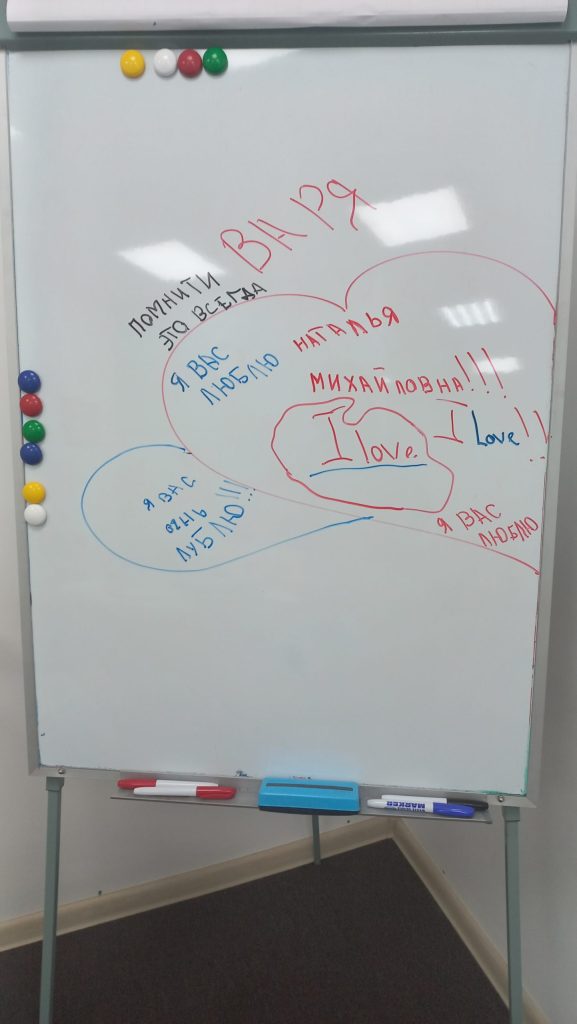 ВАРЯ
ПОМНИТИ
ЭТО ВСЕГДА
Я ВАС
ЛЮБЛЮ
НАТАЛЬЯ
МИХАЙЛОВНА!!!
I love
I Love!!
Я ВАС
ЛЮБЛЮ
Я ВАС
ЛУБЛЮ!!!
MARKER